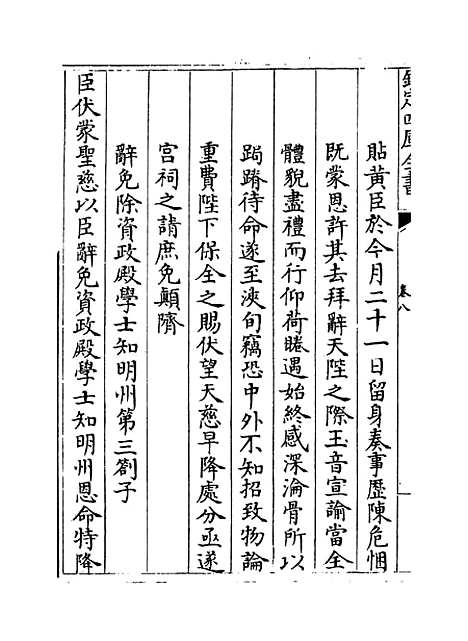 欽定四庫全書
卷八
貼黃臣於今月二十一日留身奏事歷陳危悃
既蒙恩許其去拜辭天陛之際玉音宣諭當全
體貌盡禮而行仰荷睠遇始終感深淪骨所以
跼蹐待命遂至浹旬竊恐中外不知招致物論
重費陛下保全之賜伏望天慈早降處分亟遂
宮祠之請庶免顛隮
辭免除資政殿學士知明州第三劄子
臣伏蒙聖慈以臣辭免資政殿學士知明州恩命特降